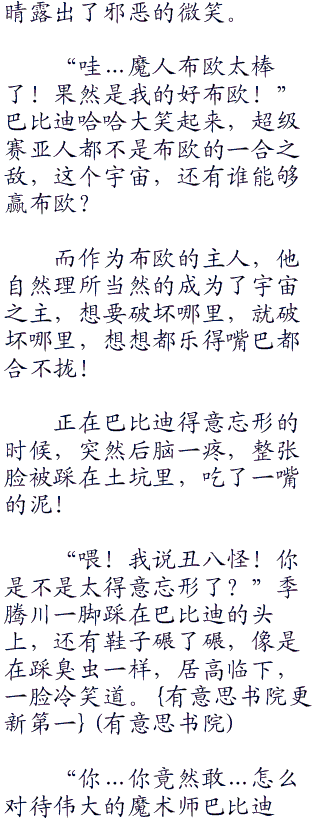 睛露出了邪恶的微笑。
“哇…魔人布欧太棒
了！果然是我的好布欧！”
巴比迪哈哈大笑起来，超级
赛亚人都不是布欧的一合之
敌，这个宇宙，还有谁能够
赢布欧？
而作为布欧的主人，他
自然理所当然的成为了宇宙
之主，想要破坏哪里，就破
坏哪里，想想都乐得嘴巴都
合不拢！
正在巴比迪得意忘形的
时候，突然后脑一疼，整张
脸被踩在土坑里，吃了一嘴
的泥！
“喂！我说丑八怪！你
是不是太得意忘形了？”季
腾川一脚踩在巴比迪的头
上，还有鞋子碾了碾，像是
在踩臭虫一样，居高临下，
一脸冷笑道。{有意思书院更
新第一}（有意思书院）
“你…你竟然敢…怎么
对待伟大的魔术师巴比迪